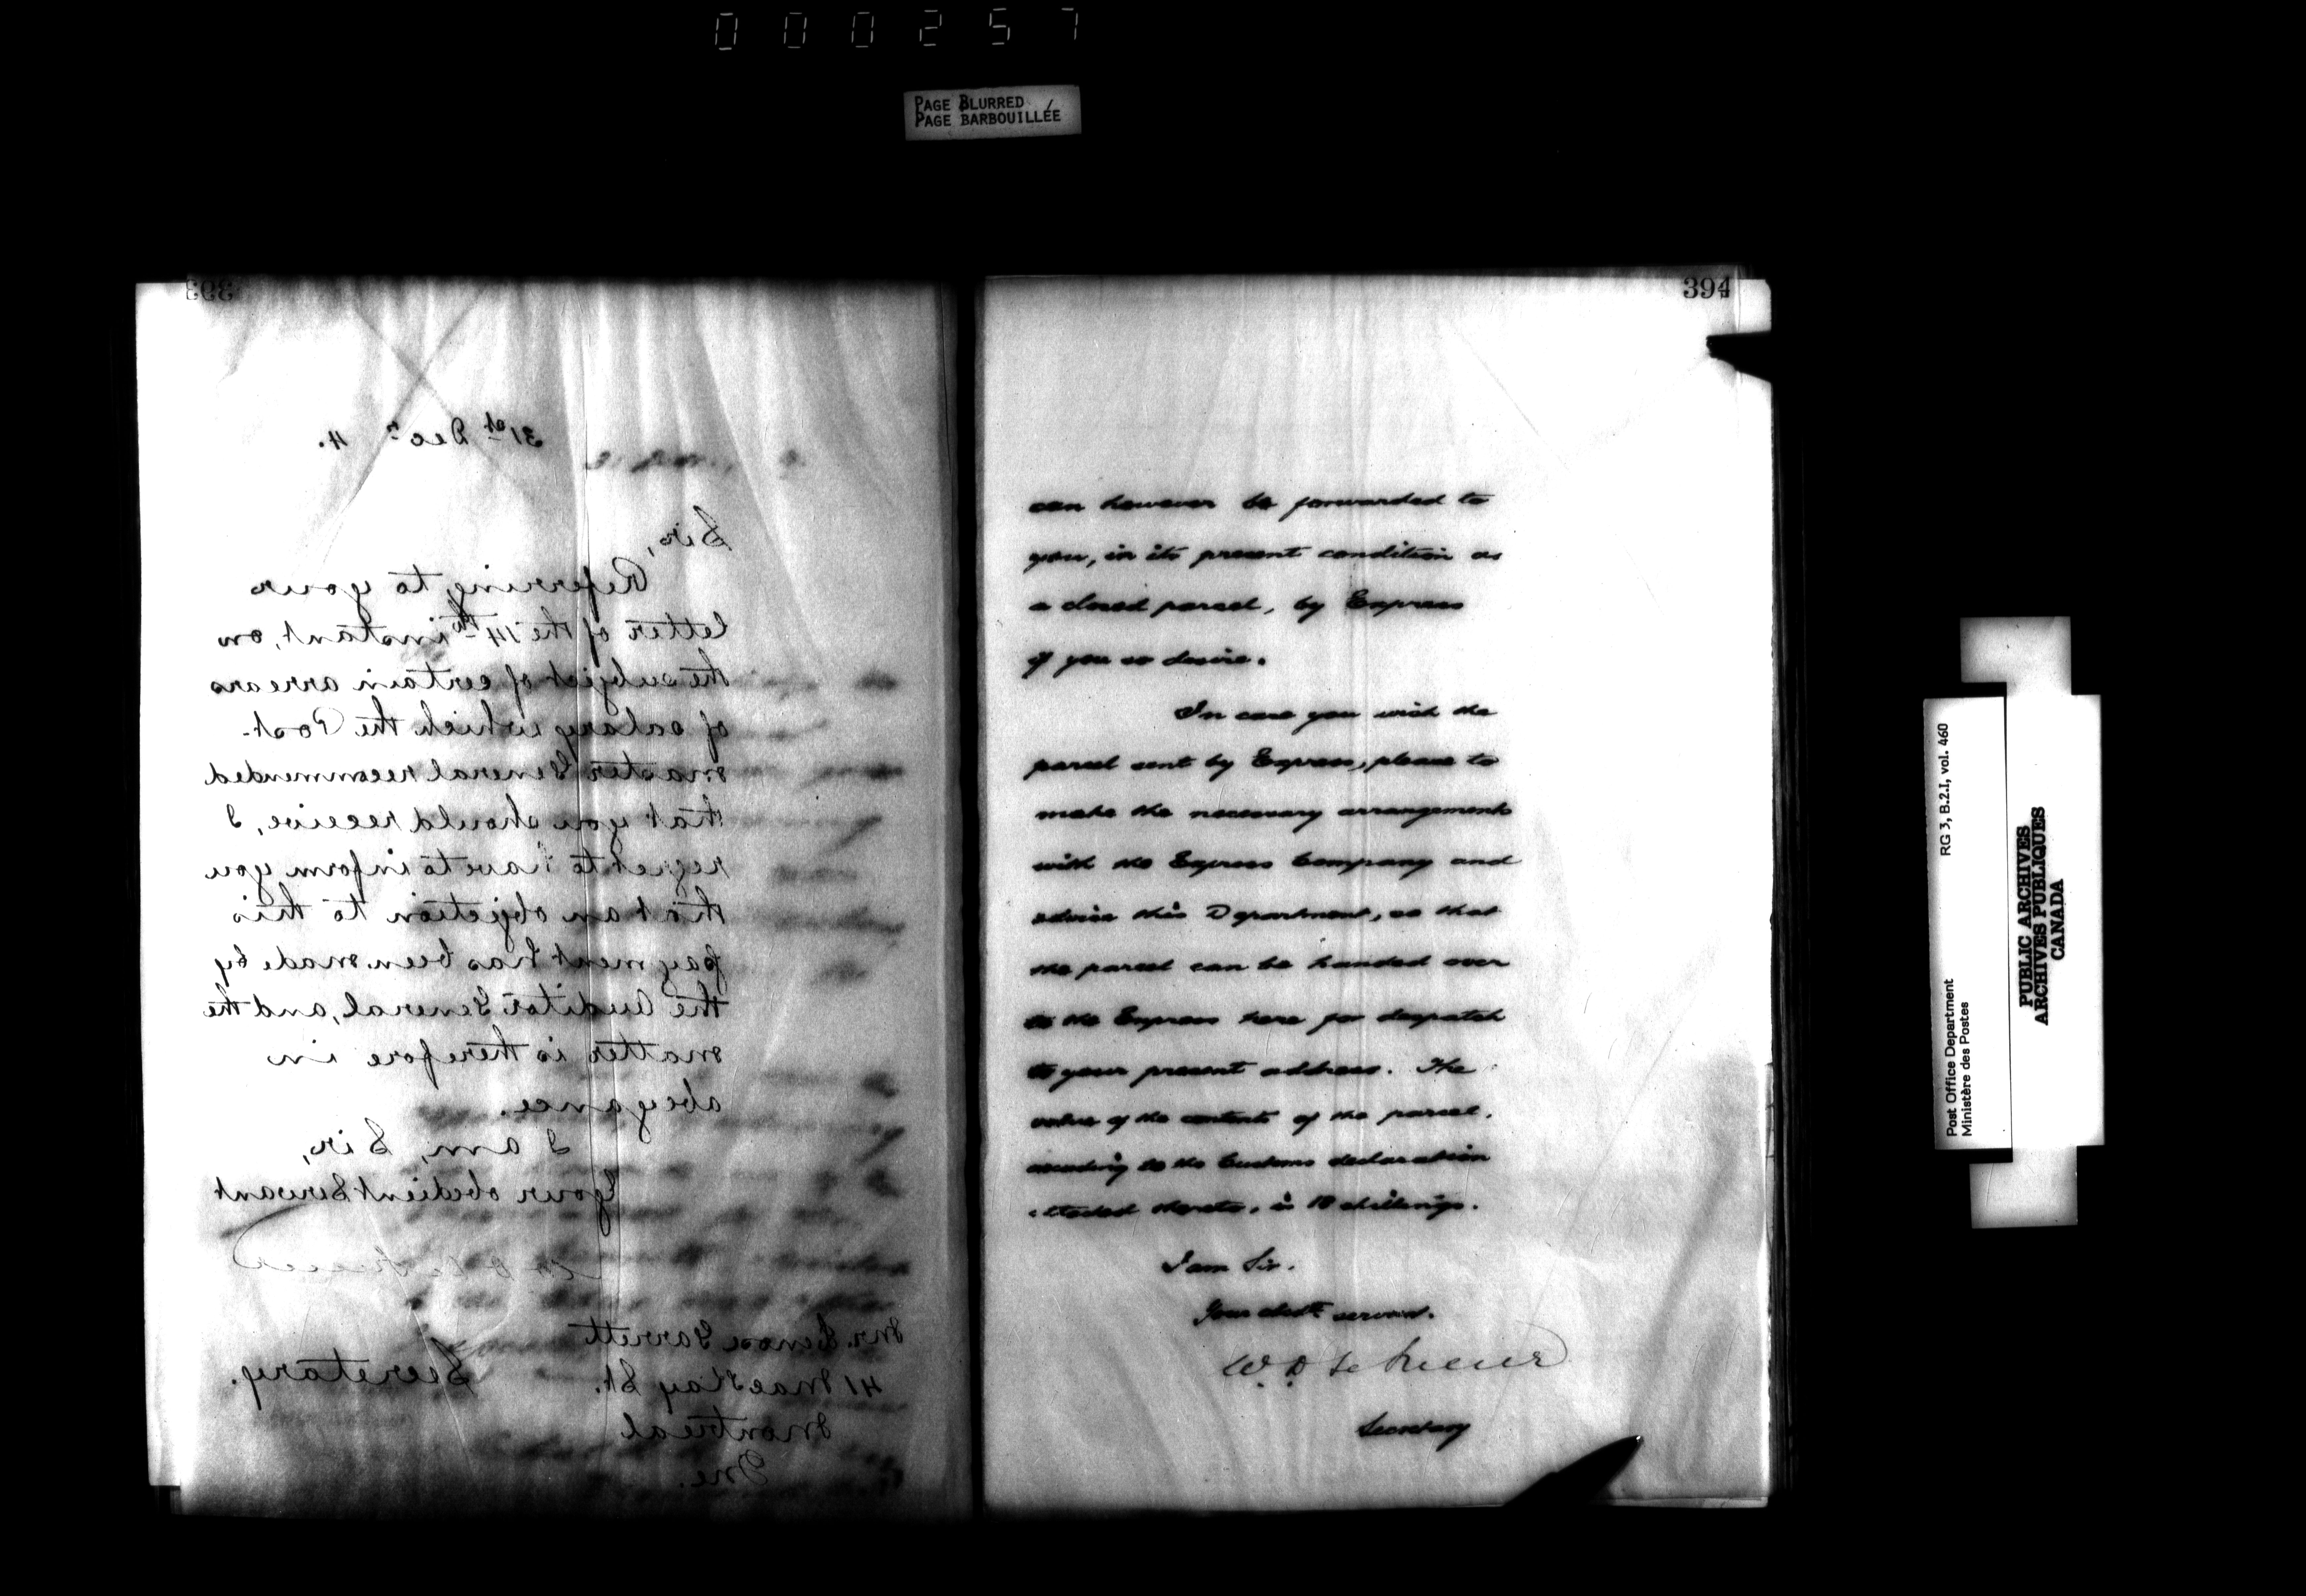 000257
PAGE BLURRED
PAGE BARBOUILLÉE
393
31st Decr 4.
Sir,
Referring to your
letter of the 14th instant, on
the subject of certain arrears
of salary which the Post-
master General recommended
that you should receive, I
regret to have to inform you
that an objection to this
payment has been made by
the Auditor General, and the
matter is therefore in
abeyance.
I am, Sir,
Your obedient Servant
Secretary.
Mr. Lenox Garrett
41 MacKay St.
Montreal
Que.
394
can however be forwarded to
you, in its present condition as
a closed parcel, by Express
if you so desire.
In case you wish the
parcel sent by Express, please to
make the necessary arrangements
with the Express Company and
advise this Department, so that
the parcel can be handed over
to the Express here for despatch
to your present address. The
value of the contents of the parcel,
according to the Customs declaration
attached thereto, is 10 shillings.
I am Sir.
Your obedt servant.
W. D. LeSueur
Secretary
RG 3, B.2.I, vol. 460
Post Office Department
Ministère des Postes
PUBLIC ARCHIVES
ARCHIVES PUBLIQUES
CANADA